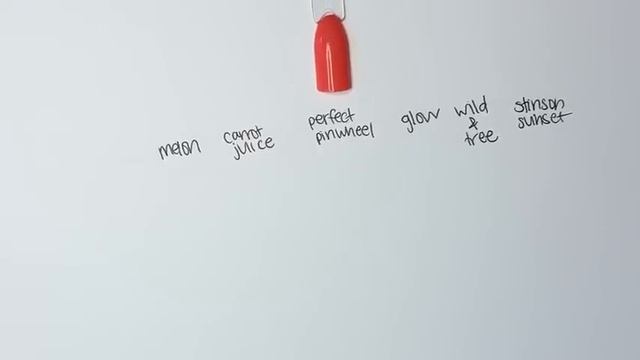 melon
carrot
juice
perfect
pinwheel
glow
wild
&
tree
stinson
sunset